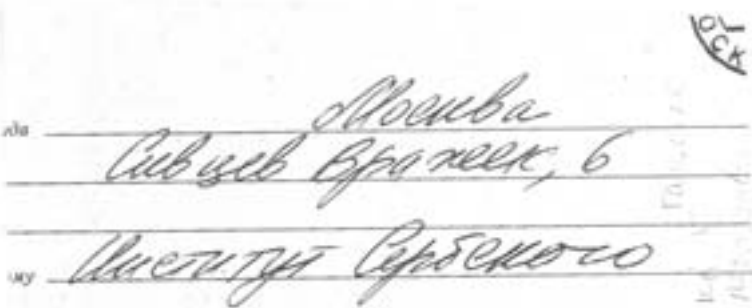 Москва
Сивцев Вражек, 6
Институт Сербского